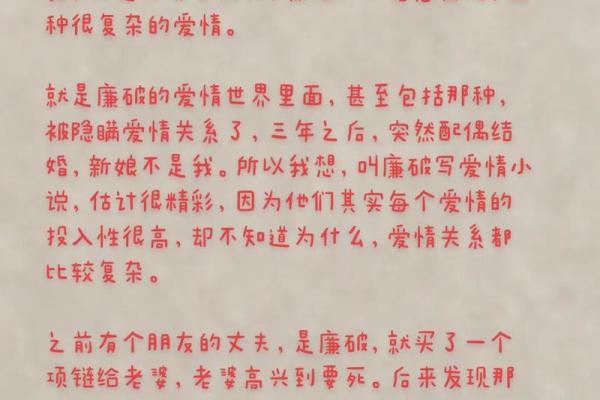 种很复杂的爱情。
就是廉破的爱情世界里面，甚至包括那种，
被隐瞒爱情关系了，三年之后，突然配偶结
婚，新娘不是我。所以我想，叫廉破写爱情小
说，估计很精彩，因为他们其实每个爱情的
投入性很高，却不知道为什么，爱情关系都
比较复杂。
之前有个朋友的丈夫，是廉破，就买了一个
项链给老婆，老婆高兴到要死。后来发现那